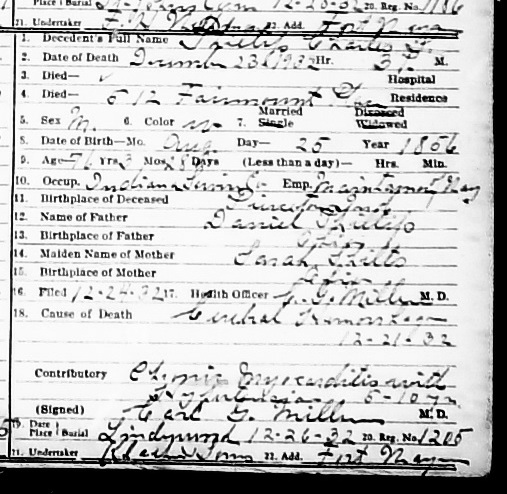 Place Burial 12-26-32 20. Reg. No. 1186
21. Undertaker 22. Add. Fort Wayne
1. Decedent's Full Name Phelps Charles F.
2. Date of Death December 23 1932 Hr. 3 P. M.
3. Died— Hospital
4. Died— 512 Fairmount Residence
5. Sex M. 6. Color W 7. Married Single Divorced Widowed
8. Date of Birth—Mo. Aug Day— 25 Year 1856
9. Age 76 Yrs 3 Mos 28 Days (Less than a day)— Hrs. Min.
10. Occup. Indiana Service Emp. Maintenance of Way
11. Birthplace of Deceased
12. Name of Father Daniel Phelps
13. Birthplace of Father
14. Maiden Name of Mother Sarah
15. Birthplace of Mother
16. Filed 12-24-32 17. Health Officer C. G. Miller M. D.
18. Cause of Death Cerebral Hemorrhage
12-21-32
Contributory Chronic Myocarditis with
5-10 yr
(Signed) Carl G. Miller M. D.
19. Date Place Burial Lindenwood 12-26-32 20. Reg. No. 1205
21. Undertaker Sons 22. Add. Fort Wayne